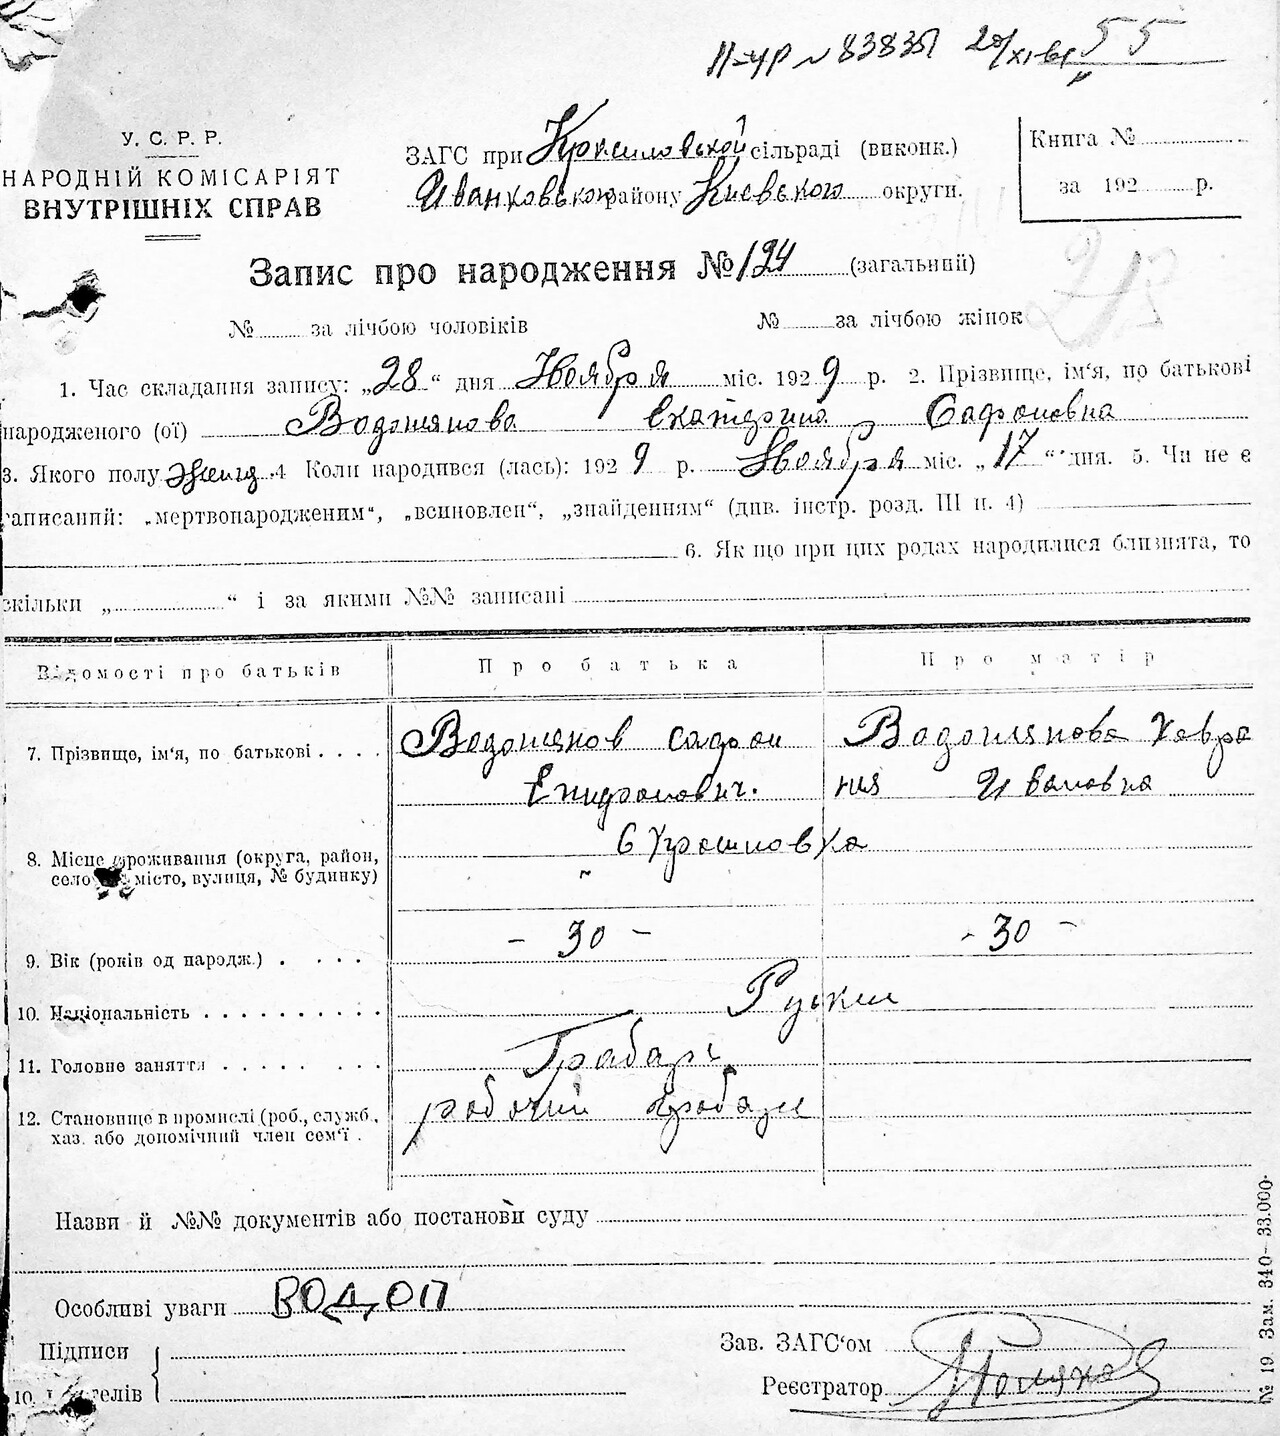 55
У. С. Р. Р.
НАРОДНІЙ КОМІСАРІЯТ
ВНУТРІШНІХ СПРАВ
ЗАГС при Красиловской сільраді (виконк.)
Иванковского району Киевского округи.
Книга №
за 192 р.
Запис про народження № 124 (загальний)
213
№ за лічбою чоловіків № за лічбою жінок
1. Час складання запису: „28“ дня Ноября міс. 1929 р. 2. Прізвище, ім‘я, по батькові
народженого (ої) Водопянова Екатерина Сафоновна
3. Якого полу женщ 4 Коли народився (лась): 1929 р. Ноября міс. „17“ дня. 5. Чи не є
записаний: „мертвонародженим“, „всиновлен“, „знайденим“ (див. інстр. розд. III п. 4)
6. Як що при цих родах народилися близнята, то
скільки „ “ і за якими №№ записані
Відомості про батьків Про батька Про матір
7. Прізвище, ім‘я, по батькові Водопянов Сафон Водопянова Хавро
Епифанович. ния Ивановна
8. Місце проживання (округа, район,
село місто, вулиця, № будинку)
С Крашновка
9. Вік (років од народж.) - 30 - - 30 -
10. Національність Руские
11. Головне заняття Грабарь
12. Становище в промислі (роб., служб.,
хаз. або допомічний член сем‘ї.
рабочий грабарь
Назви й №№ документів або постанови суду
Особливі уваги ВОДОП
Підписи
Зав. ЗАГС‘ом
Реєстратор
№ 19. Зам. 340—33.000.